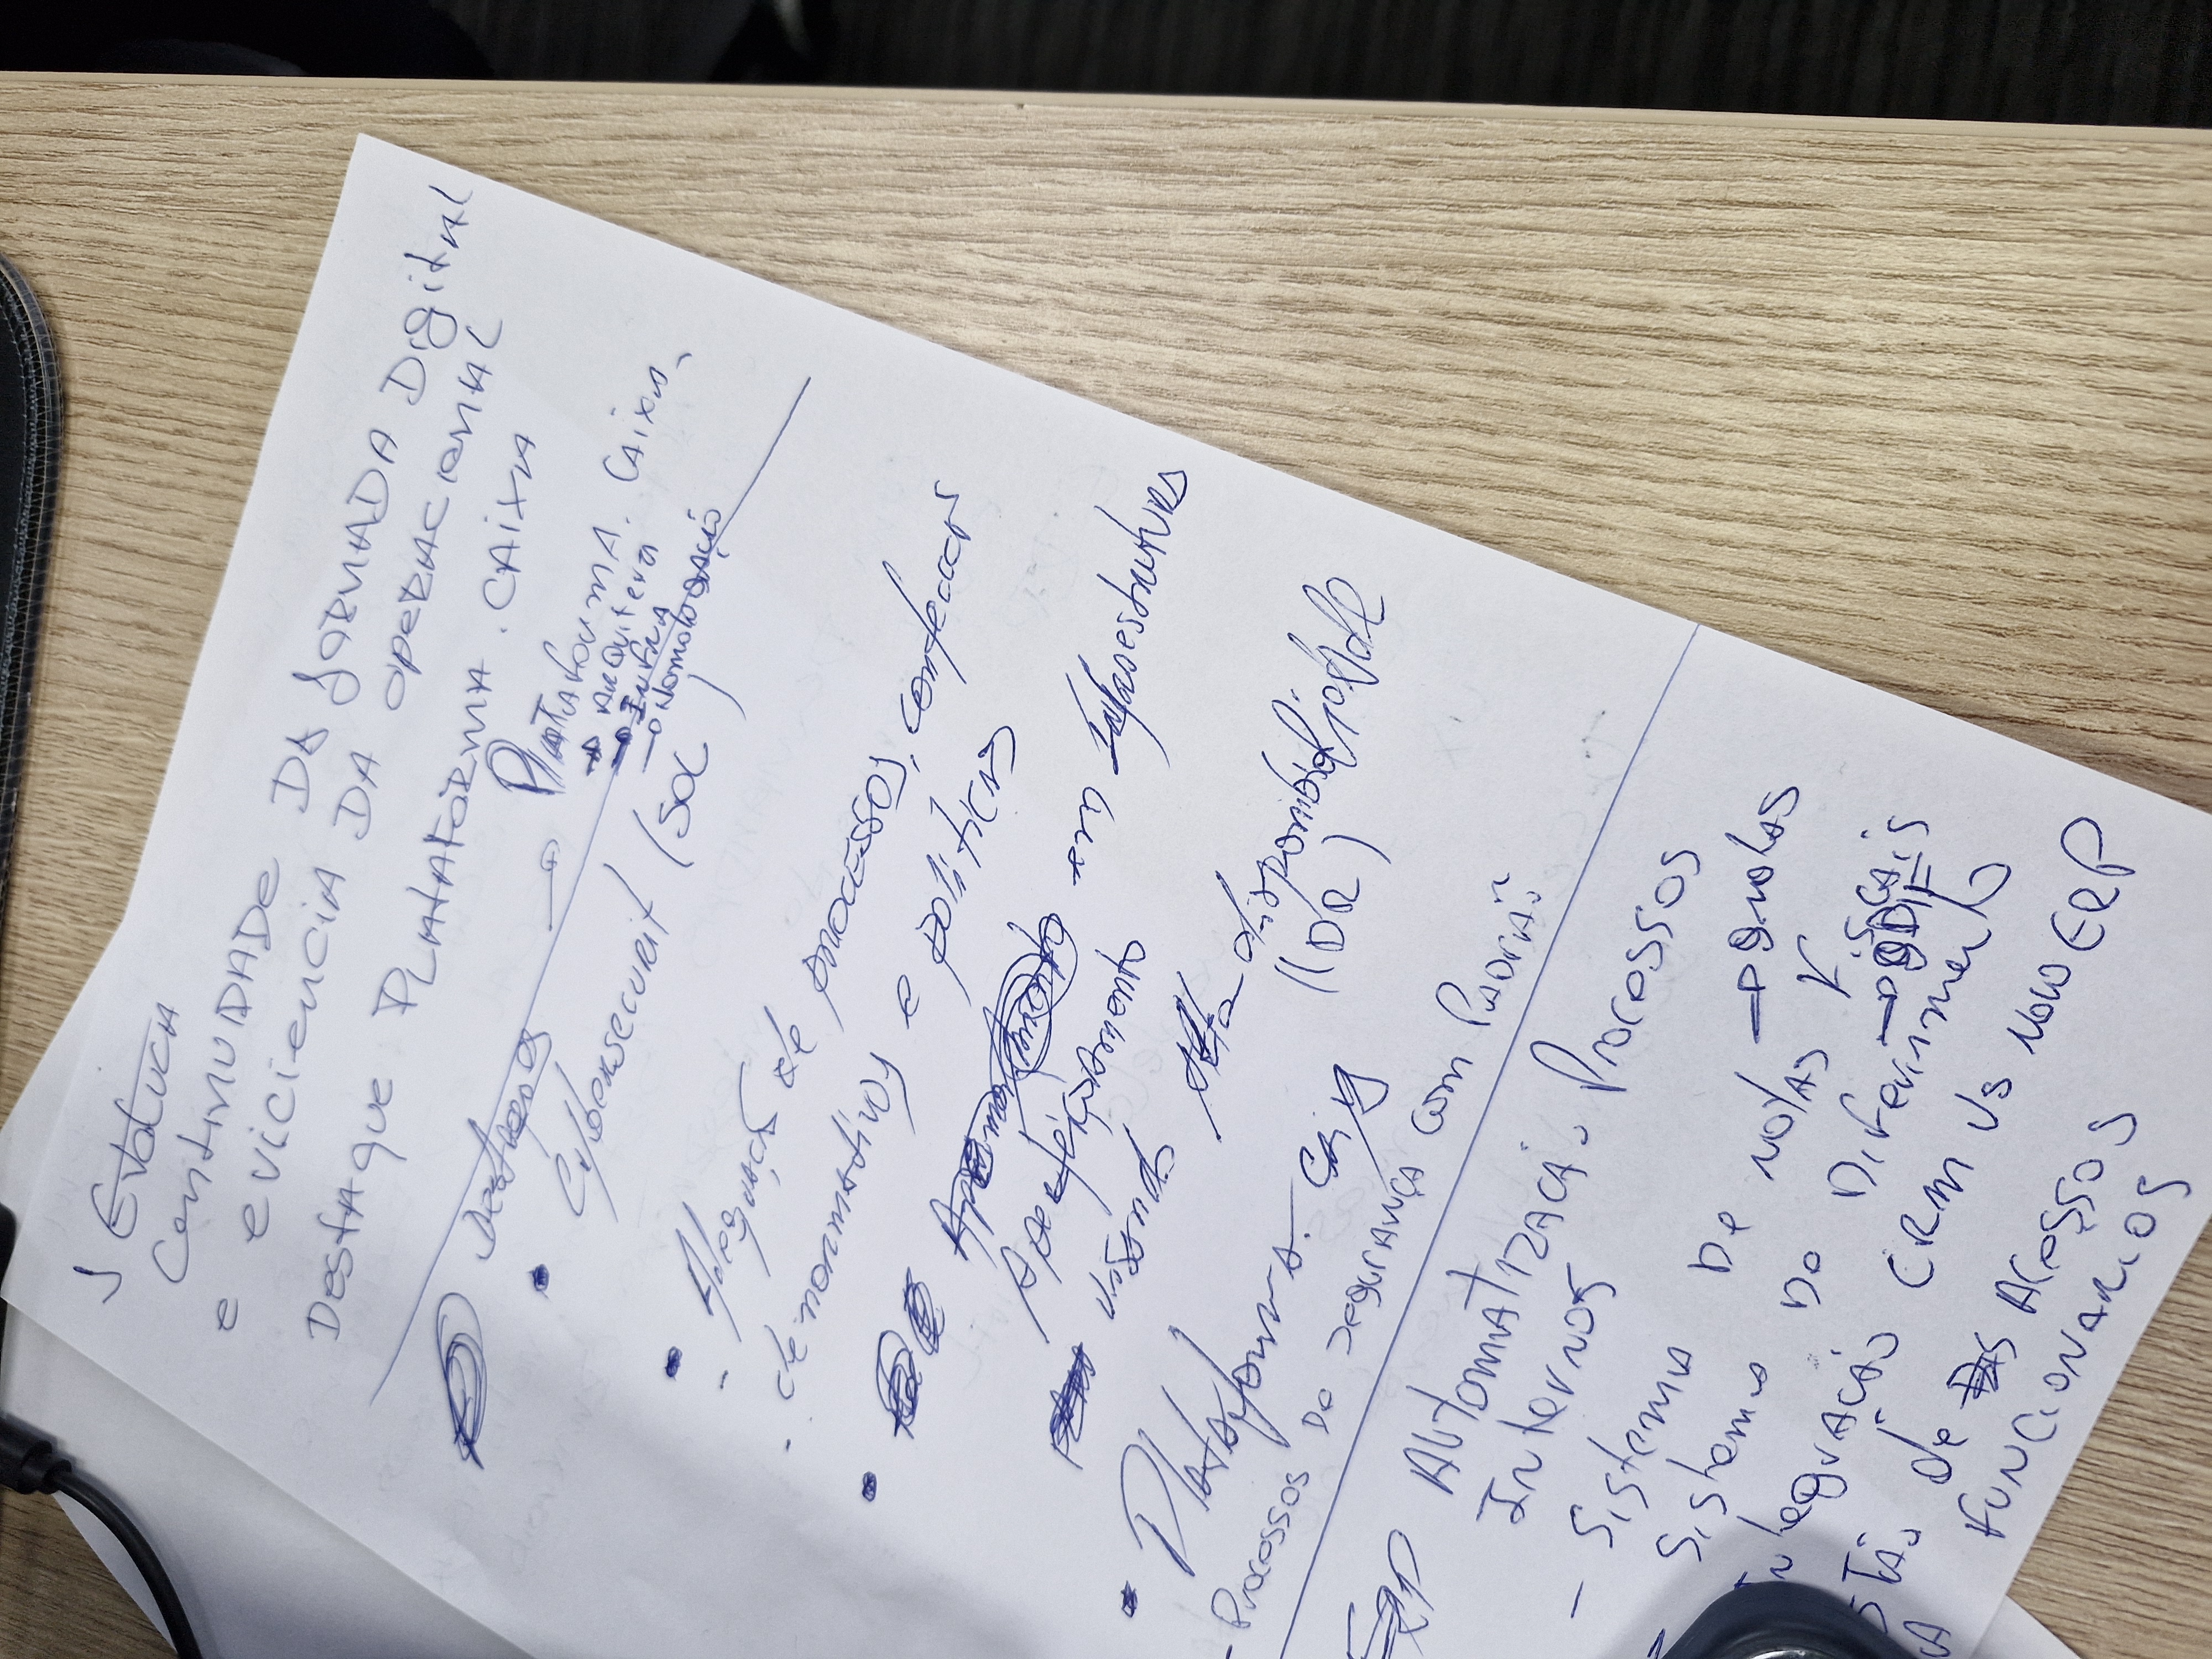 Evolução
Continuidade Da Jornada Digital
e eviciencia Da operacional
Destaque Plataforma. Caixa
Destaques → Plataforma. Caixa.
→ Arquitera
→ Infra
→ Homologação
• Cybersecurit (SOC)
• Adequação de processos,
- de normativos e politicas
• Aperfeiçoamento em Infraestrutura
visando alta disponibilidade
(DR)
• Plataforma Caixa
- Processos De segurança com Padrão
ERP Automatização Processos
Internos
- Sistema De notas → gnotas
Sistema Do Diferimento → gDif
Fiscais
Integração CRM vs novo ERP
de Acessos
Funcionarios